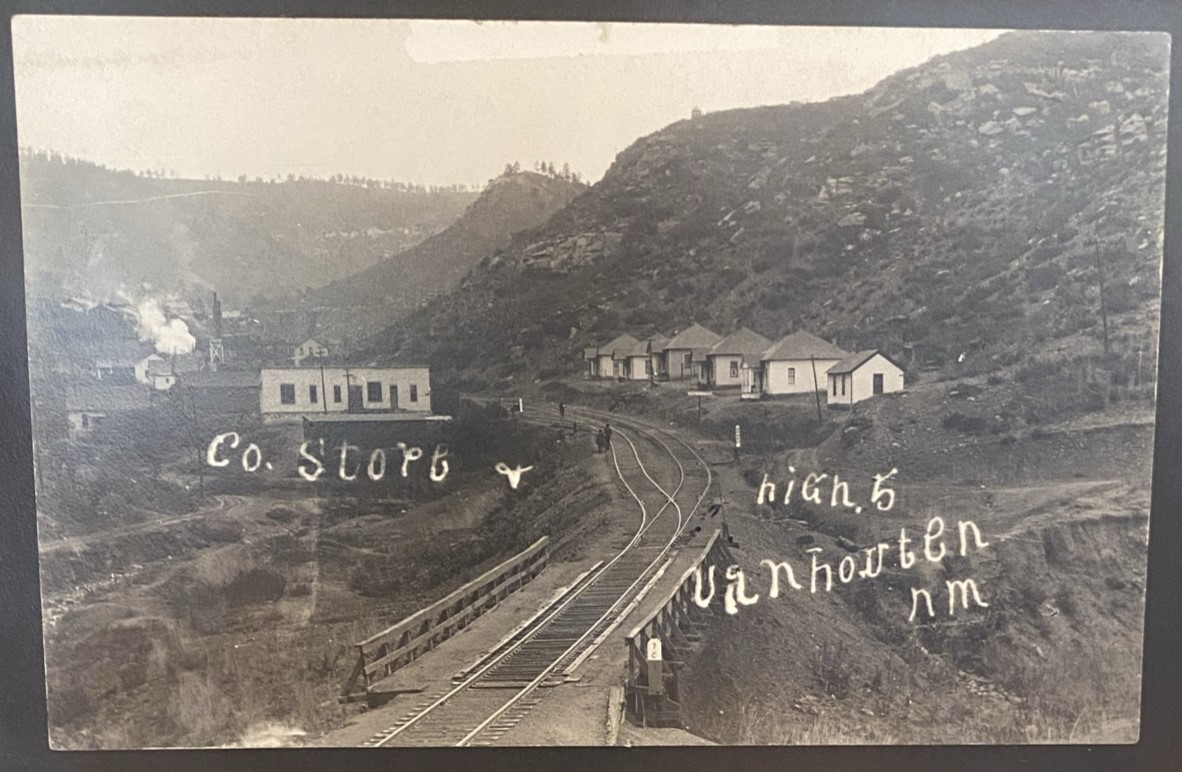 Co. Store &
high.5
Vanhouten
nm
7
C